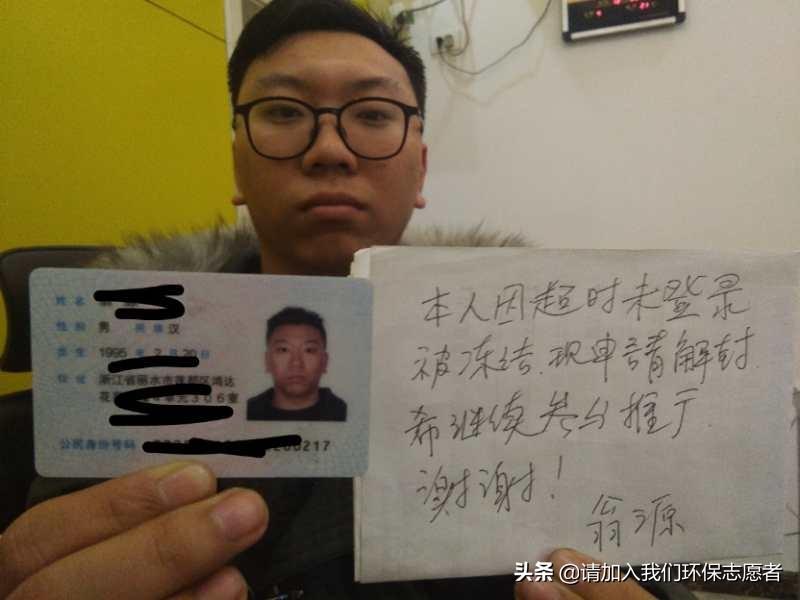 姓名
性别 男 民族 汉
出生 1995 年 2 月 20 日
住址 浙江省丽水市莲都区鸿达
花 单元306室
公民身份号码 200217
本人因超时未登录
被冻结.现申请解封.
希继续参与推广.
谢谢!
翁源
头条 @请加入我们环保志愿者